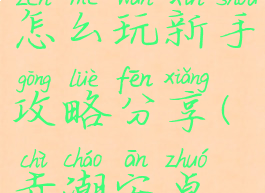 zěn me wán xīn shǒu
怎么玩新手
gōng lüè fēn xiǎng
攻略分享(
chì cháo ān zhuó
赤潮安卓